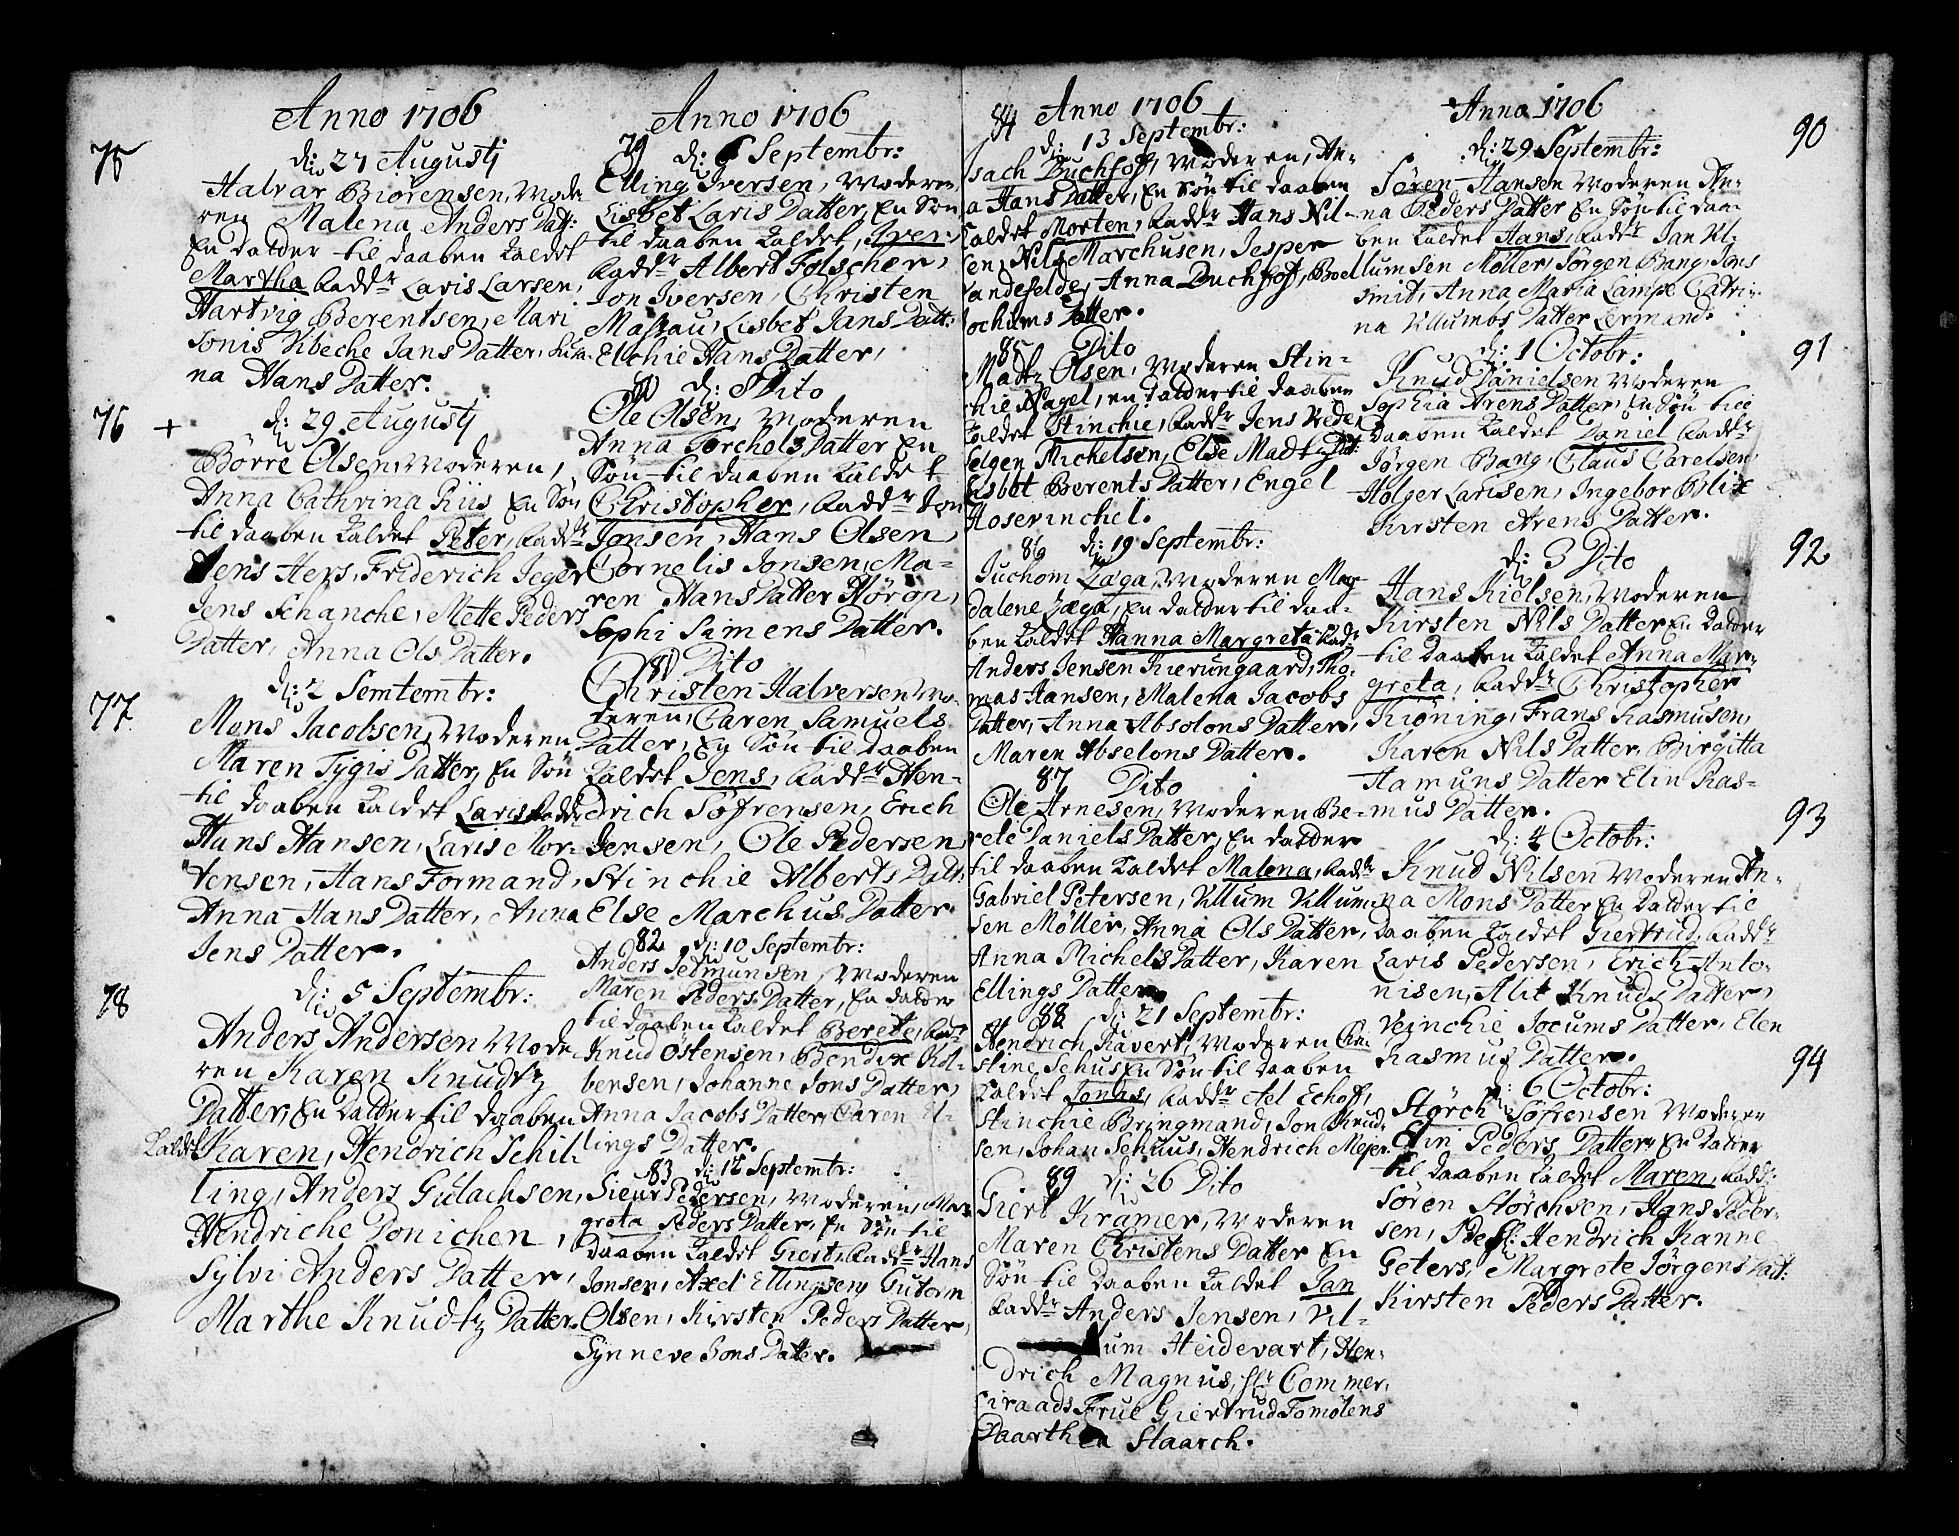 Anno 1706
75
d: 27 Augustj
Halvar Biörensen, Mode-
ren Malena Anders Datt:
En datter til daaben kaldet
Martha Fadd:r Laris Larsen,
Hartvig Berentsen, Mari
Jonis Vbeche Jans Datter,
na Hans Datter.
76 +
d: 29 Augustj
Börre Olsen, Moderen,
Anna Cathrina Riis En Sön
til daaben kaldet Peter, Fadd:r
Jens Hers, Friderich Jeger
Jens Schanche, Mette Peders
Datter, Anna Ols Datter.
77
d: 2 Semtembr:
Mons Jacobsen, Moderen
Maren Tygis Datter, En Sön
til daaben kaldet Laris Fadd:r
Hans Hansen, Laris Mor-
tensen, Hans Formand,
Anna Hans Datter, Anna
Jens Datter.
78
d: 5 Septembr:
Anders Andersen Mode-
ren Karen Knudtz
Datter, En Datter til daaben
kaldet Karen, Hendrich Schil-
ling, Anders Gulachsen,
Hendriche Donichen,
Sylvi Anders Datter,
Marthe Knudtz Datter.
Anno 1706
79 d: 6 Septembr:
Elling Iversen, Moderen,
Lisbet Laris Datter, En Sön
til daaben kaldet, Iver,
Fadd:r Albert Folscher,
Jon Iversen, Christen
Massau, Lisbet Jans Datt:
Elchie Hans Datter,
80 d: 8 Dito
Ole Olsen, Moderen
Anna Torchols Datter En
Sön til daaben kaldet
Christopher, Fadd:r Jon
Jonsen, Hans Olsen,
Cornelis Jonsen, Ma-
ren Hans Datter Höron,
Sophi Simens Datter.
81 Dito
Christen Halversen Mo-
deren, Caren Samuels
Datter, En Sön til daaben
kaldet Jens, Fadd:r Hen-
drich Söfrensen, Erich
Jensen, Ole Pedersen
Stinchie Alberts Datt:
Else Marchus Datter.
82 d: 10 Septembr:
Anders Sedmunsen, Moderen
Maren Peders Datter, En datter
til daaben kaldet Berete, Fad:r
Knud Östensen, Bendix Kol-
bensen, Johanne Jons Datter,
Anna Jacobs Datter, Caren El-
lings Datter.
83 d: 12 Septembr:
Sieur Pedersen, Moderen, Mar-
greta Peders Datter, En Sön til
daaben kaldet Giert, Fadd:r Hans
Jonsen, Axel Ellingsen, Gutorm
Olsen, Kirsten Peders Datter,
Synneve Jons Datter.
84 Anno 1706
d: 13 Septembr:
Isach Buchhoff, Moderen, An-
na Hans Datter, En Sön til daaben
kaldet Morten, Fadd:r Hans Nil-
sen, Nils Marchusen, Jesper
Sandefelde, Anna Buchhoff, Boel
Jochims Datter.
85 Dito
Madtz Olsen, Moderen Stin-
chie Nagel, en datter til daaben
kaldet Stinchie, Fadd:r Jens Peder
Selgen Michelsen, Else Madtz Dat:
Lisbet Berents Datter, Engel
Hoserinchel.
86 d: 19 Septembr:
Juchom Læga, Moderen Mag-
dalene Læga, En datter til daa-
ben kaldet Hanna Margreta Fad:r
Anders Jensen Kierungaard, Tho-
mas Hansen, Malena Jacobs
Datter, Anna Absolons Datter,
Maren Abselons Datter.
87 Dito
Ole Arnesen, Moderen Be-
rete Daniels Datter, En datter
til daaben kaldet Malena, Fadd:r
Gabriel Petersen, Villum Villum-
sen Möller, Anna Ols Datter,
Anna Michels Datter, Karen
Ellings Datter.
88 d: 21 Septembr:
Hendrich Kavert, Moderen Chri-
stine Schus En Sön til daaben
kaldet Jonas, Fadd:r Ael Echoff,
Stinchie Bringmand, Jon Knud-
sen, Johan Schuus, Hendrich Mejer.
89 d: 26 Dito
Giert Kramer, Moderen
Maren Christens Datter En
Sön til daaben kaldet Jan
Fadd:r Anders Jensen, Vil-
um Heidevart, Hen-
drich Magnus, Commer-
ciraads Frue Giertrud Tomölens
Daarthea Staarch.
Anna 1706
90
d: 29 Septembr:
Sören Hansen Moderen An-
na Peders Datter En Sön til daa-
ben kaldet Hans, Fadd:r Jan Vil-
lumsen Möller, Jörgen Bang, Jens
Smit, Anna Maria Lampe Catri-
na Villumbs Datter Lermand.
91
d: 1 Octobr:
Knud Danielsen Moderen
Sophia Arens Datter, En Sön til
daaben kaldet Daniel Fadd:r
Jörgen Bang, Claus Carelsen,
Holger Larisen, Ingebor Blix
Kirsten Arens Datter.
92
d: 3 Dito
Hans Kielsen, Moderen
Kirsten Nils Datter En Datter
til daaben kaldet Anna Mar-
greta, Fadd:r Christopher
Kröning, Frans Rasmusen,
Karen Nils Datter, Birgitta
Hamuns Datter Elin Ras-
mus Datter.
93
d: 4 Octobr:
Knud Nilsen Moderen An-
na Mons Datter En datter til
daaben kaldet Giertrud, Fadd:r
Laris Pedersen, Erich Anto-
nisen, Alit Knudz Datter,
Veinchie Jocums Datter, Elen
Rasmus Datter.
94
d: 6 Octobr:
Störch Söfrensen Moderen
Elin Peders Datter, En Datter
til daaben kaldet Maren, Fadd:
Sören Störchsen, Hans Peder-
sen, Hendrich Kanne
Geters, Margrete Jörgens Dat:
Kirsten Peders Datter.